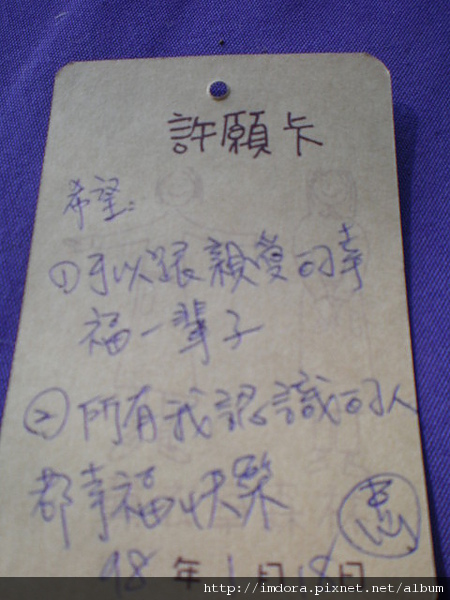 許願卡
希望:
① 可以跟親愛的幸
福一輩子
② 所有我認識的人
都幸福快樂
98年1月18日
http://imdora.pixnet.net/album